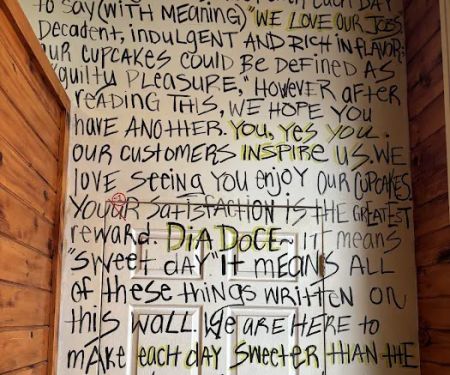 to say (with meaning) "WE LOVE OUR JOBS.
Decadent, indulgent AND RICH in FLAVOR;
our cupcakes could BE DEFINED AS
"guilty pleasure," HOWEVER after
reading THIS, WE HOPE YOU
have ANOTHER. You, yes you.
OUR CUSTOMERS INSPIRE US. WE
love seeing you enjoy OUR CUPCAKES.
YOUR SatisFACTION IS tHE GREATEST
reward. DiA DOCE~ IT means
"sweet day" It mEANS ALL
of these things written on
this wall. We ARE HERE to
MAKE each day sweeter THAN tHE